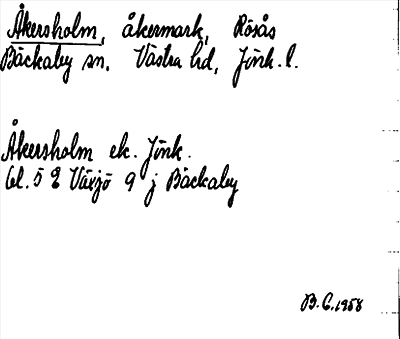 Åkersholm, åkermark, Rösås
Bäckaby sn. Västra hd, Jönk. l.
Åkersholm ek. Jönk.
bl. 5 Ö Växjö 9 j Bäckaby
B.C. 1958